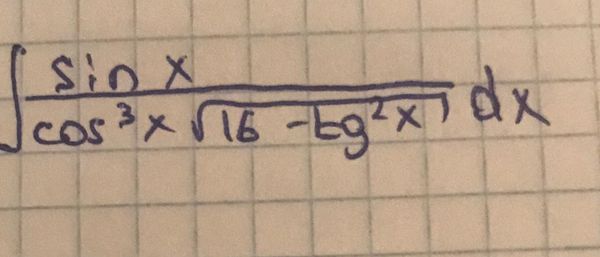 ∫ sin x / cos³x √(16 - tg²x) dx